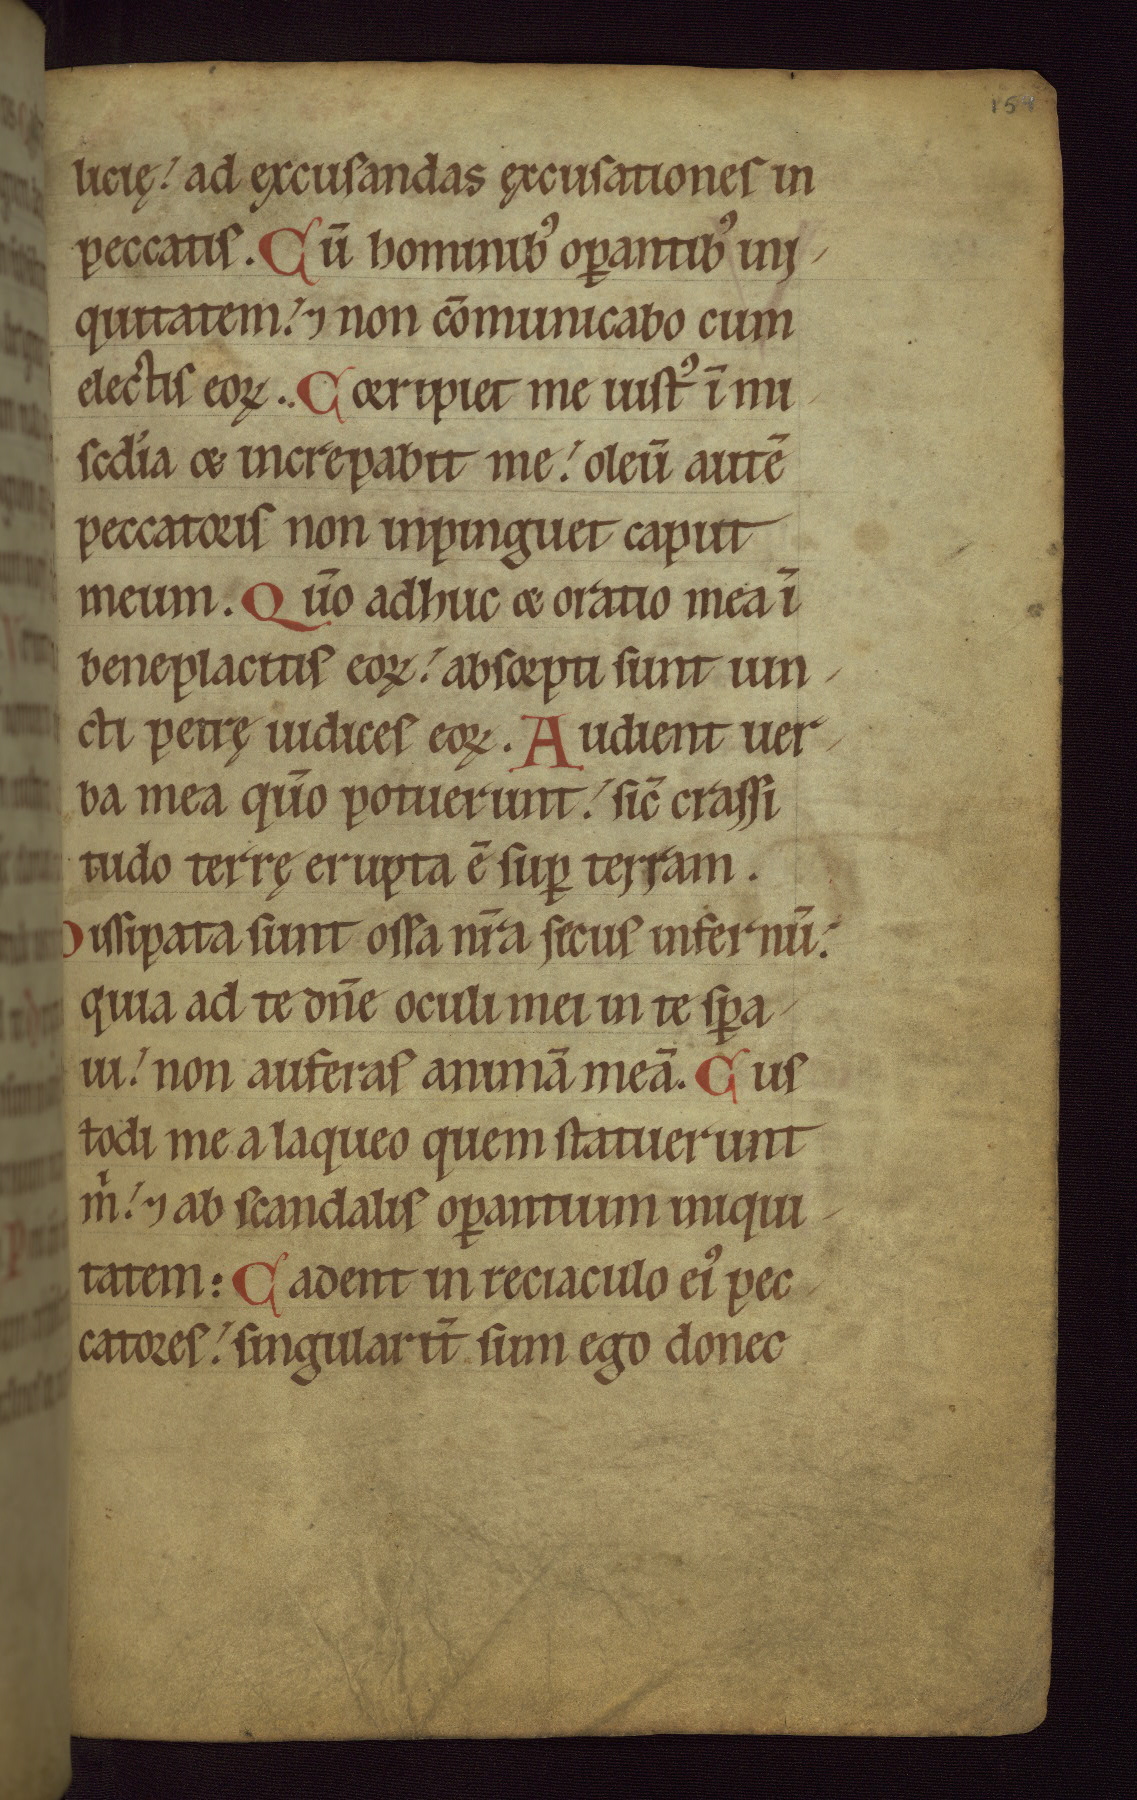 154
licię! ad excusandas excusationes in
peccatis. Cū hominibꝰ oꝑantibꝰ ini
quitatem! ⁊ non cōmunicabo cum
electis eoꝝ. Corripiet me iustꝰ ī mi
scdia & increpabit me! oleū autē
peccatoris non inpinguet caput
meum. Quō adhuc & oratio mea ī
beneplacitis eoꝝ! absorpti sunt iun
cti petrę iudices eoꝝ. Audient uer
ba mea quō potuerunt! sic̄ crassi
tudo terrę erupta ē suꝑ terram.
Dissipata sunt ossa nr̄a secus infernū!
quia ad te dn̄e oculi mei in te sꝑa
ui! non auferas animā meā. Cus
todi me a laqueo quem statuerunt
m̓! ⁊ ab scandalis oꝑantium iniqui
tatem: Cadent in reciaculo eiꝰ pec
catores! singularit̄ sum ego donec